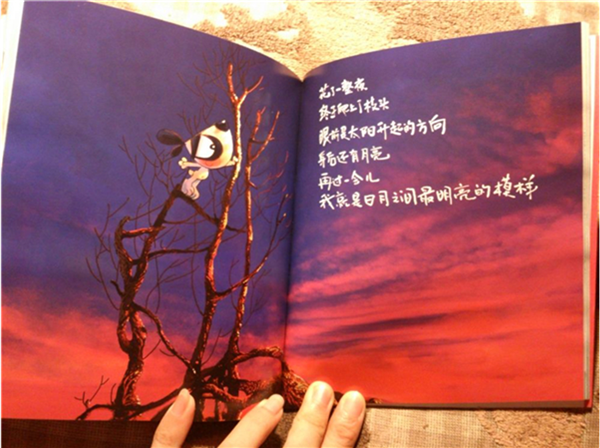 花了一整夜
终于爬上了枝头
眼前是太阳升起的方向
身后还有月亮
再过一会儿
我就是日月之间最明亮的模样